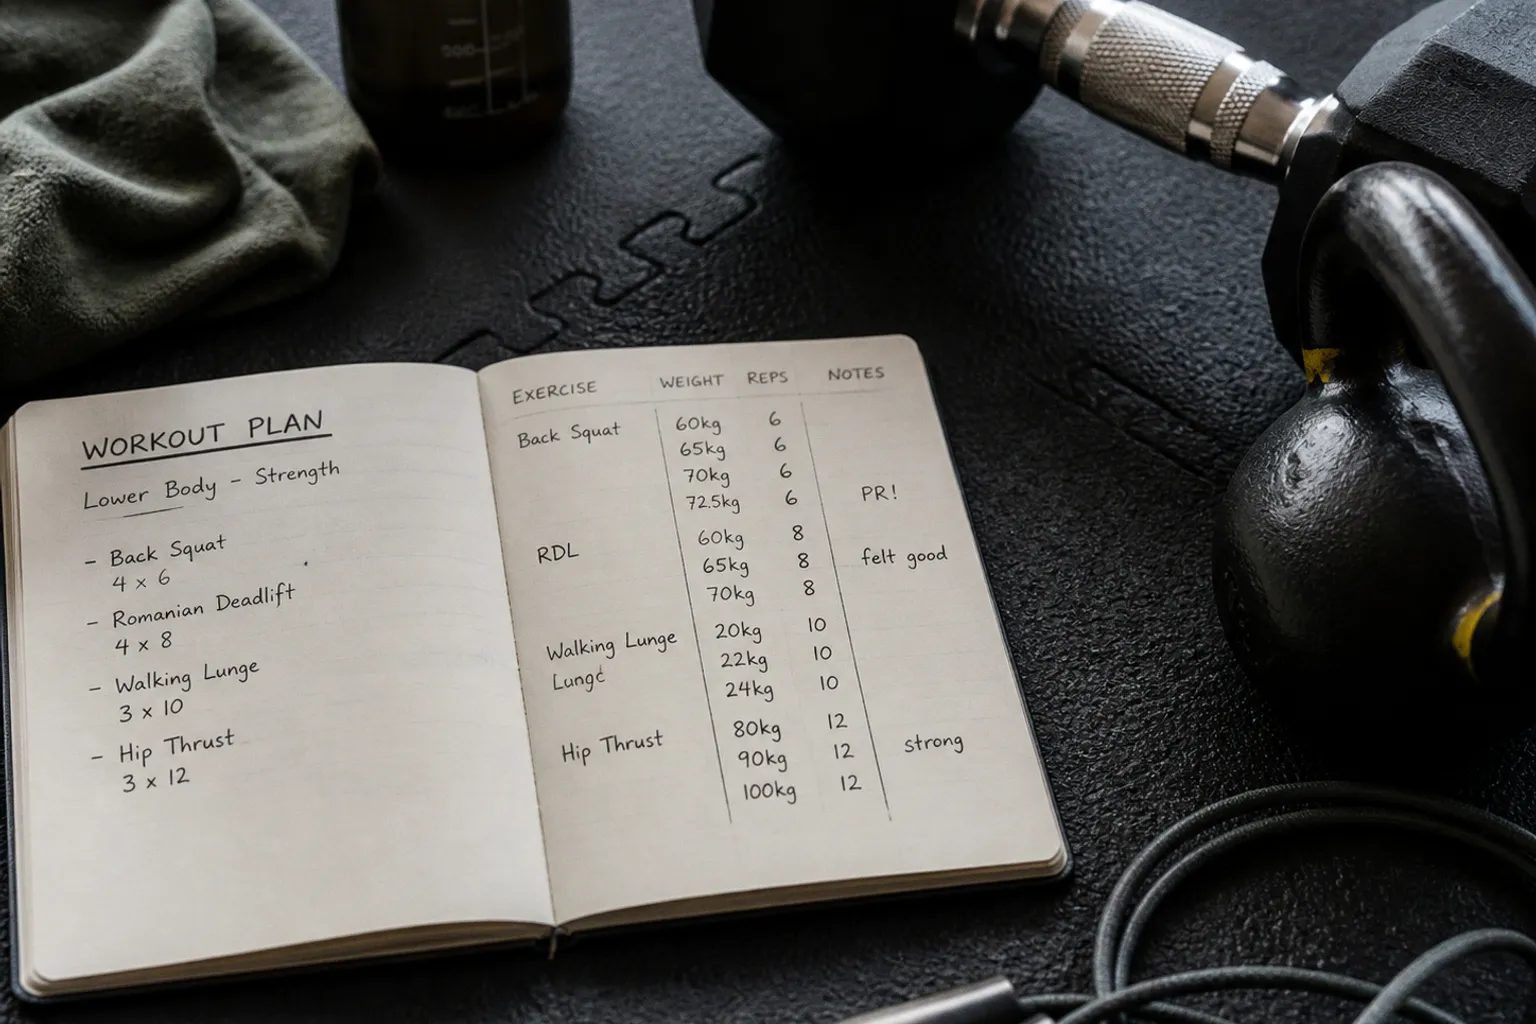 WORKOUT PLAN
Lower Body - Strength
- Back Squat
4 x 6
- Romanian Deadlift
4 x 8
- Walking Lunge
3 x 10
- Hip Thrust
3 x 12
EXERCISE WEIGHT REPS NOTES
Back Squat 60kg 6
65kg 6
70kg 6
72.5kg 6 PR!
RDL 60kg 8
65kg 8 felt good
70kg 8
Walking Lunge 20kg 10
Lung 22kg 10
24kg 10
Hip Thrust 80kg 12
90kg 12 strong
100kg 12